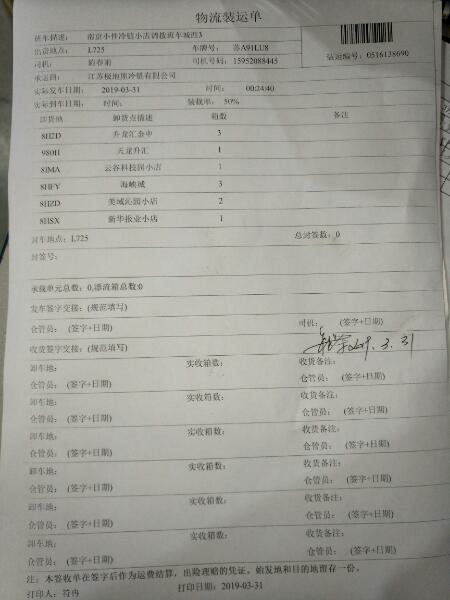 物流装运单
班车描述： 南京小件冷链小店调拨班车城西3
出货地点： L725 车牌号： 苏A91LU8
装运编号：0516138690
司机： 司机号码：15952088445
承运商： 江苏极地熊冷链有限公司
实际发车日期： 2019-03-31 时间： 00:24:40
实际到车日期： 时间： 装载率： 50%
卸货地 卸货点描述 箱数 备注
8H2D 升龙汇金中 3
980H 天龙升汇 1
8IMA 云谷科技园小店 1
8HFY 海峡城 3
8HZD 美域沁园小店 2
8HSX 新华报业小店 1
封车地点：L725 总封签数：0
封签号：
承载单元总数：0,漂流箱总数:0
发车签字交接：(规范填写)
仓管员： (签字+日期) 司机： (签字+日期)
收货签字交接：(规范填写) 2019.3.31
卸车地： 实收箱数： 收货备注：
仓管员： (签字+日期) 仓管员： (签字+日期)
卸车地： 实收箱数： 收货备注：
仓管员： (签字+日期) 仓管员： (签字+日期)
卸车地： 实收箱数： 收货备注：
仓管员： (签字+日期) 仓管员： (签字+日期)
卸车地： 实收箱数： 收货备注：
仓管员： (签字+日期) 仓管员： (签字+日期)
卸车地： 实收箱数： 收货备注：
仓管员： (签字+日期) 仓管员： (签字+日期)
卸车地： 实收箱数： 收货备注：
仓管员： (签字+日期) 仓管员： (签字+日期)
注：本签收单在签字后作为运费结算，出险理赔的凭证。始发地和目的地留存一份。
打印人：符冉 打印日期：2019-03-31